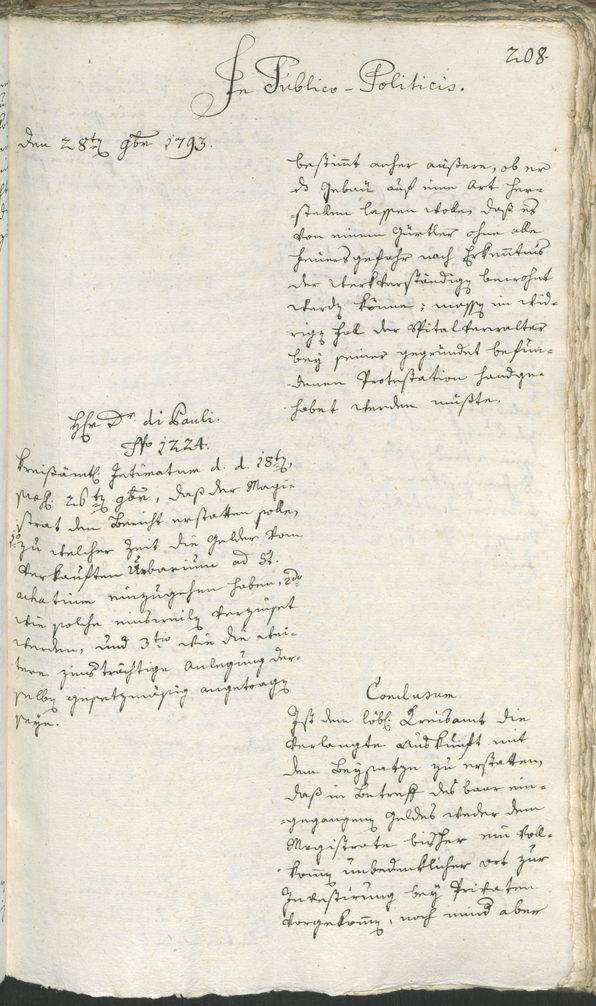 208.
In Publico-Politicis.
den 28ten 9br 1793.
bestimt anher äußere, ob er
ds Gebäu auf eine Art her-
stellen lassen wolle, daß es
von einem Gürtler ohne alle
Feuersgefahr nach Erkenntnis
der Werkverständigen bewohnt
werden könne; massen im wid-
rigen Fall der Spitalverwalter
bey seiner gegründet befun-
denen Protestation handge-
habet werden müßte.
Hr Dr. di Pauli.
No 1224.
Kreisämtl. Intimatum d. d. 18ten
präs. 26ten 9br, daß der Magi-
strat den Bericht erstatten solle,
1o zu welcher Zeit die Gelder vom
verkauften Urbarium ad St.
Achatium einzugehen haben, 2do
wie solche einsweilen verzinset
werden, und 3tio wie die wei-
tere zinsträchtige Anlegung der-
selben gesetzmäsig angetragen
seye.
Conclusum.
Ist dem löbl. Kreisamt die
verlangte Auskunft mit
dem Beysatze zu erstatten,
daß in Betreff des baar ein-
gegangenen Geldes weder dem
Magistrate bisher ein voll-
kommen unbedenklicher Ort zur
Investirung bey Privaten
vorgekommen, noch mind aber